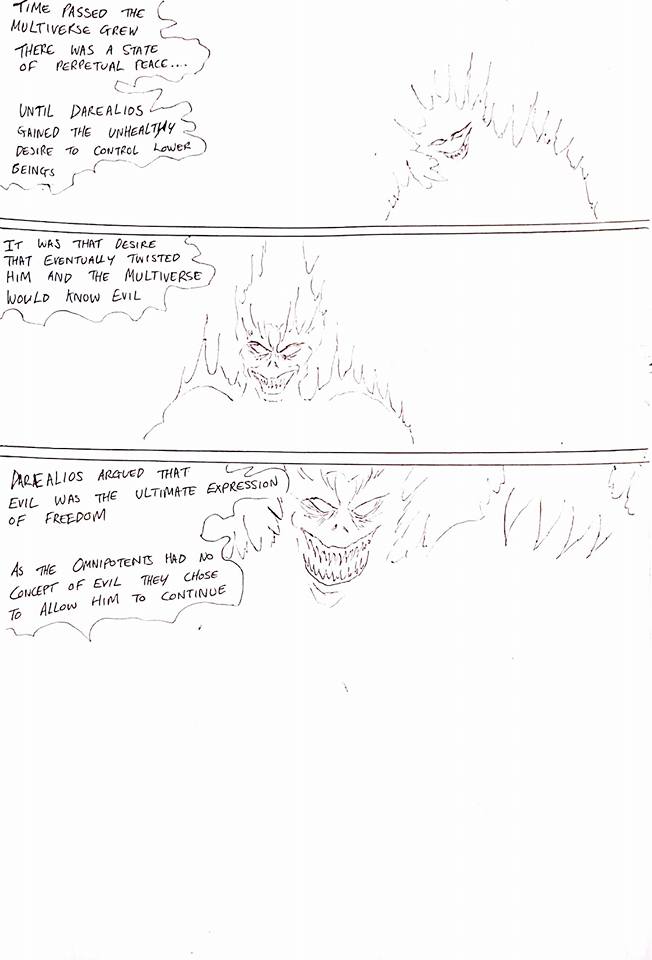 TIME PASSED THE
MULTIVERSE GREW
THERE WAS A STATE
OF PERPETUAL PEACE....
UNTIL DAREALIOS
GAINED THE UNHEALTHY
DESIRE TO CONTROL LOWER
BEINGS
IT WAS THAT DESIRE
THAT EVENTUALLY TWISTED
HIM AND THE MULTIVERSE
WOULD KNOW EVIL
DAREALIOS ARGUED THAT
EVIL WAS THE ULTIMATE EXPRESSION
OF FREEDOM
AS THE OMNIPOTENTS HAD NO
CONCEPT OF EVIL THEY CHOSE
TO ALLOW HIM TO CONTINUE